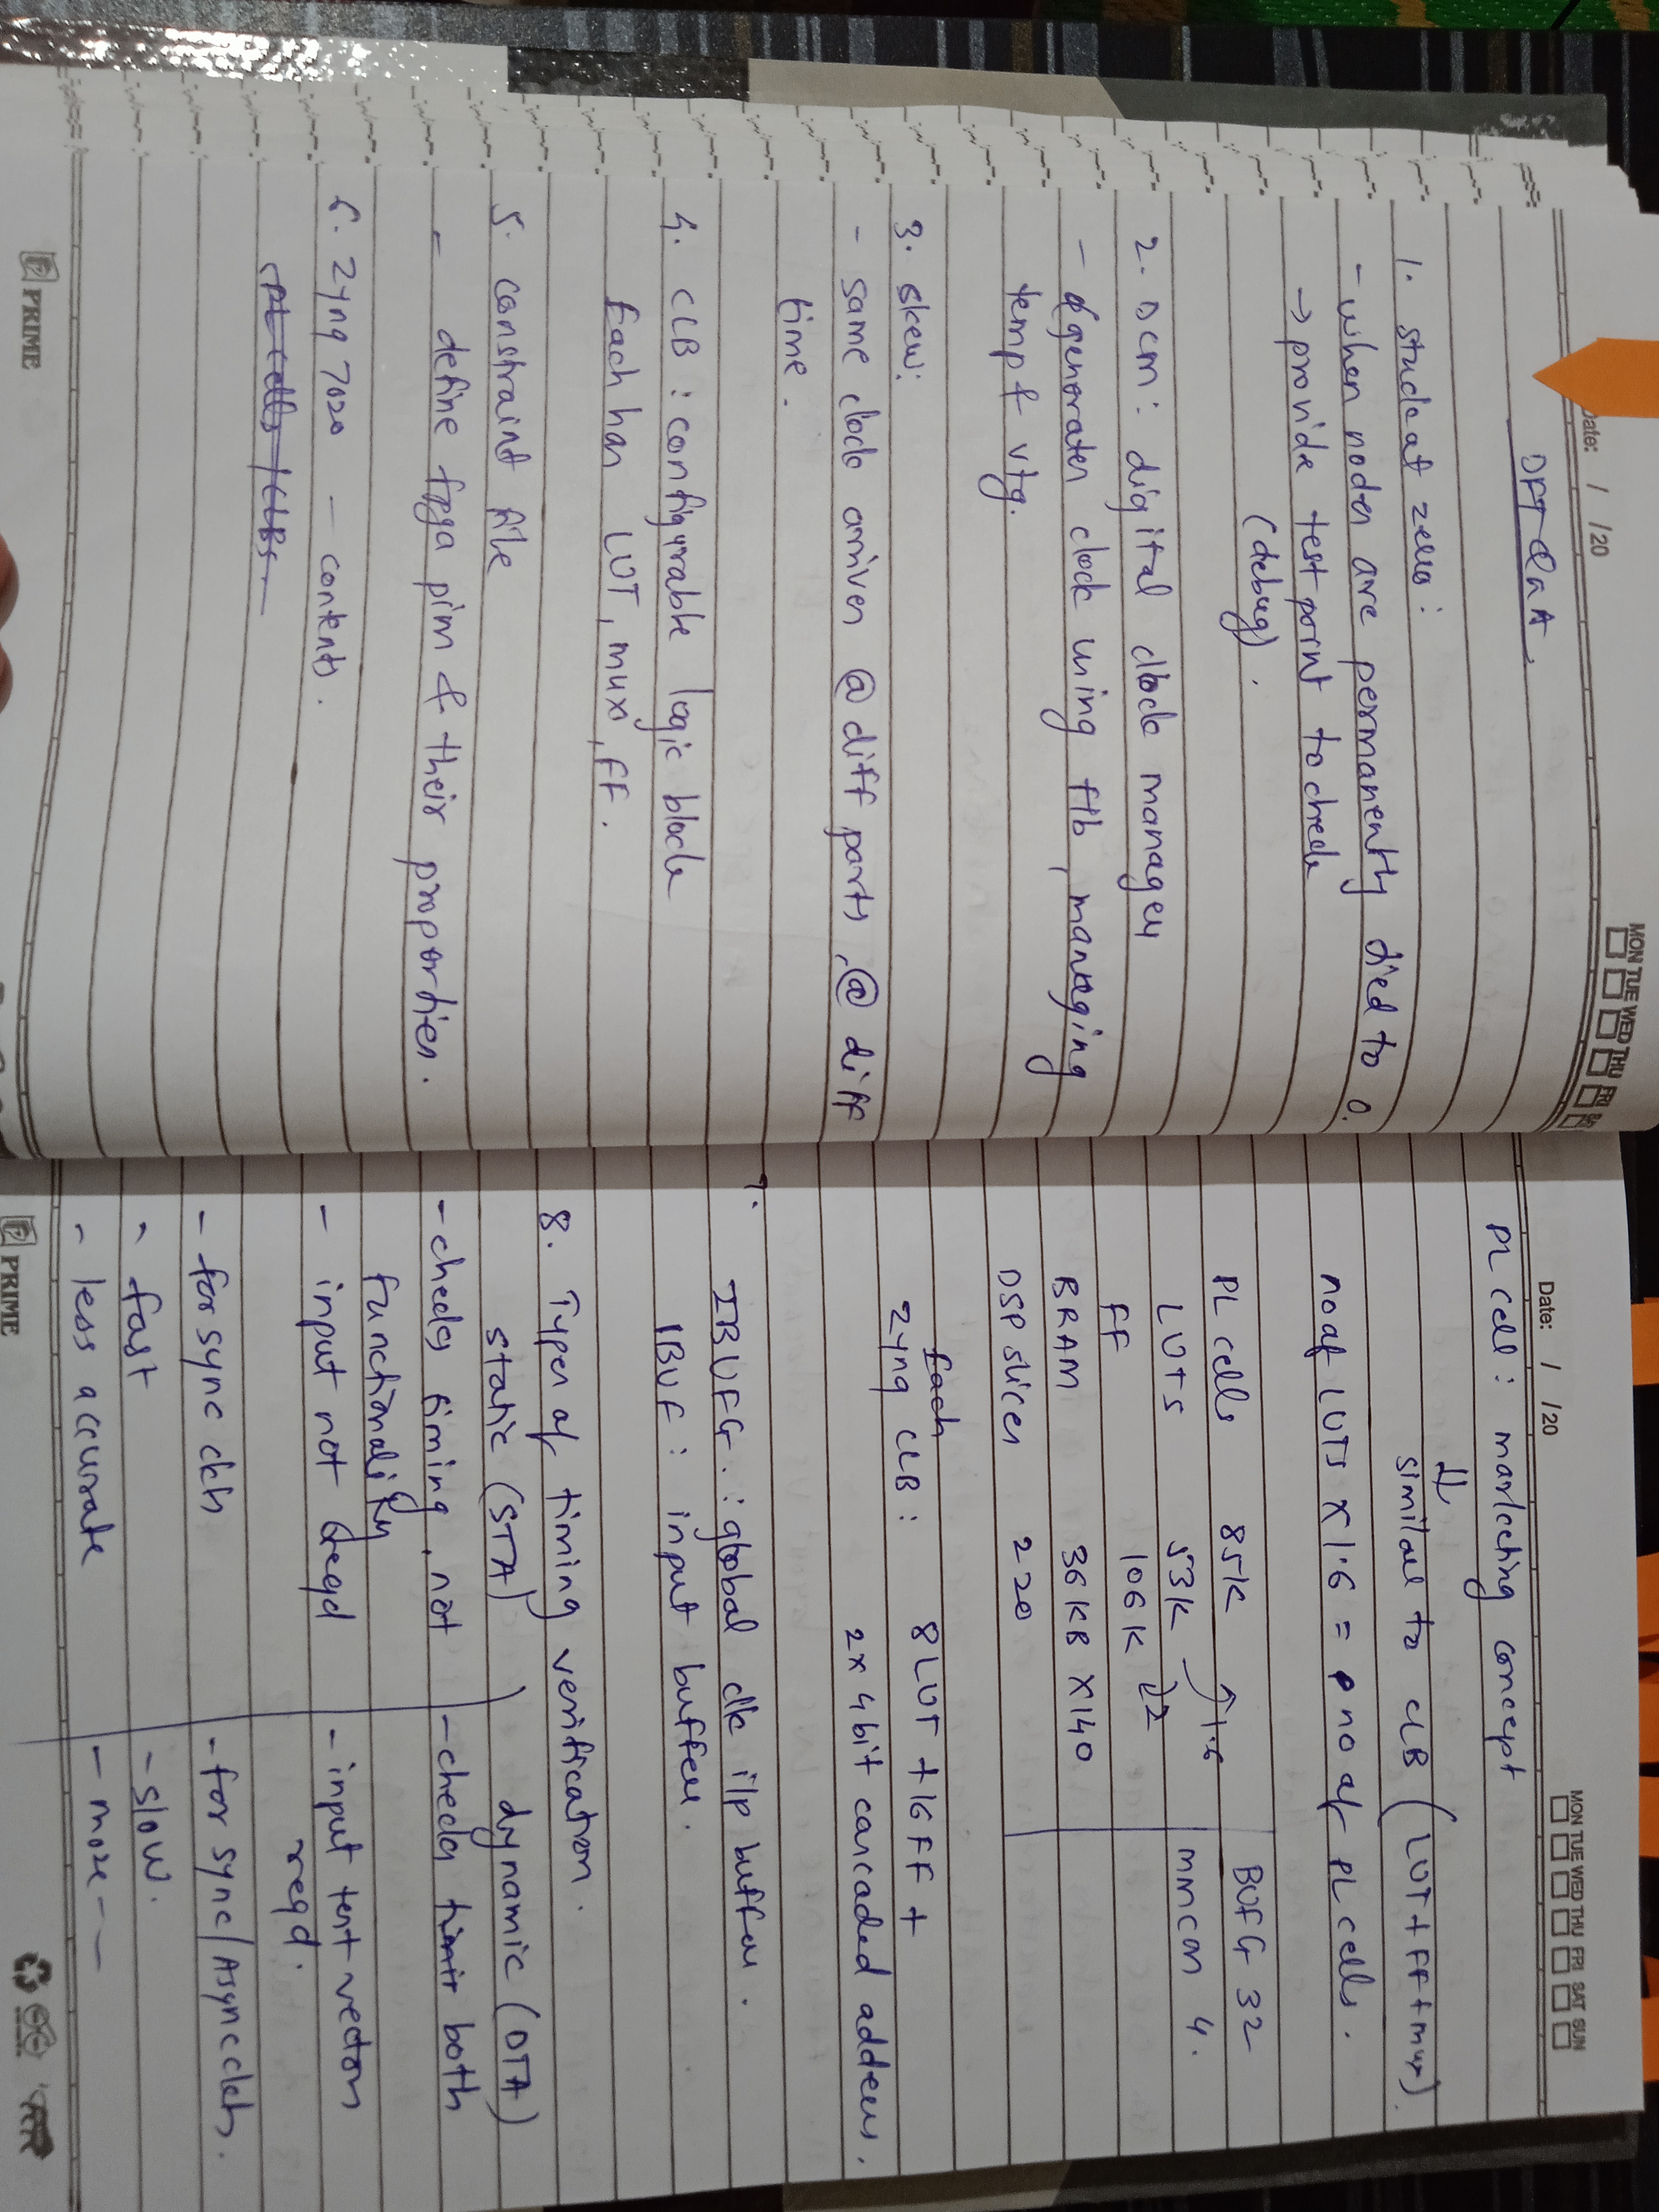 Date: / /20
MON TUE WED THU FRI
DFT QnA.
1. stuck at zero :
- when nodes are permanently died to 0.
→ provide test point to check
(debug).
2. DCM : digital clock manager
- generates clock using f/b, managing
temp & vtg.
3. skew:
- same clock arrives @ diff parts, @ diff
time.
4. CLB : configurable logic block
Each has LUT, mux, FF.
5. constraint file
- define fpga pins & their properties.
6. Zynq 7020 - contents.
PL cells / CLBs
PRIME
Date: / /20
MON TUE WED THU FRI SAT SUN
PL cell : marketing concept
↓
similar to CLB (LUT + FF + mux).
no of LUTs x 1.6 = no of PL cells.
PL cells 85K ↑1.6 BUFG 32
LUTs 53K mmcm 4.
FF 106K x2
BRAM 36KB x140
DSP slices 220
Each
Zynq CLB : 8 LUT + 16 FF +
2 x 4 bit cascaded adders.
7. IBUFG : global clk i/p buffer.
IBUF : input buffer.
8. Types of timing verification.
static (STA) dynamic (DTA)
- checks timing, not - checks timit both
functionality
- input not reqd - input test vectors
reqd.
- for sync ckts - for sync/Async ckts.
- fast - slow.
- less accurate - more - -
PRIME